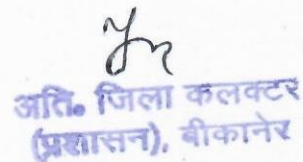 अति॰ जिला कलक्टर
(प्रशासन), बीकानेर